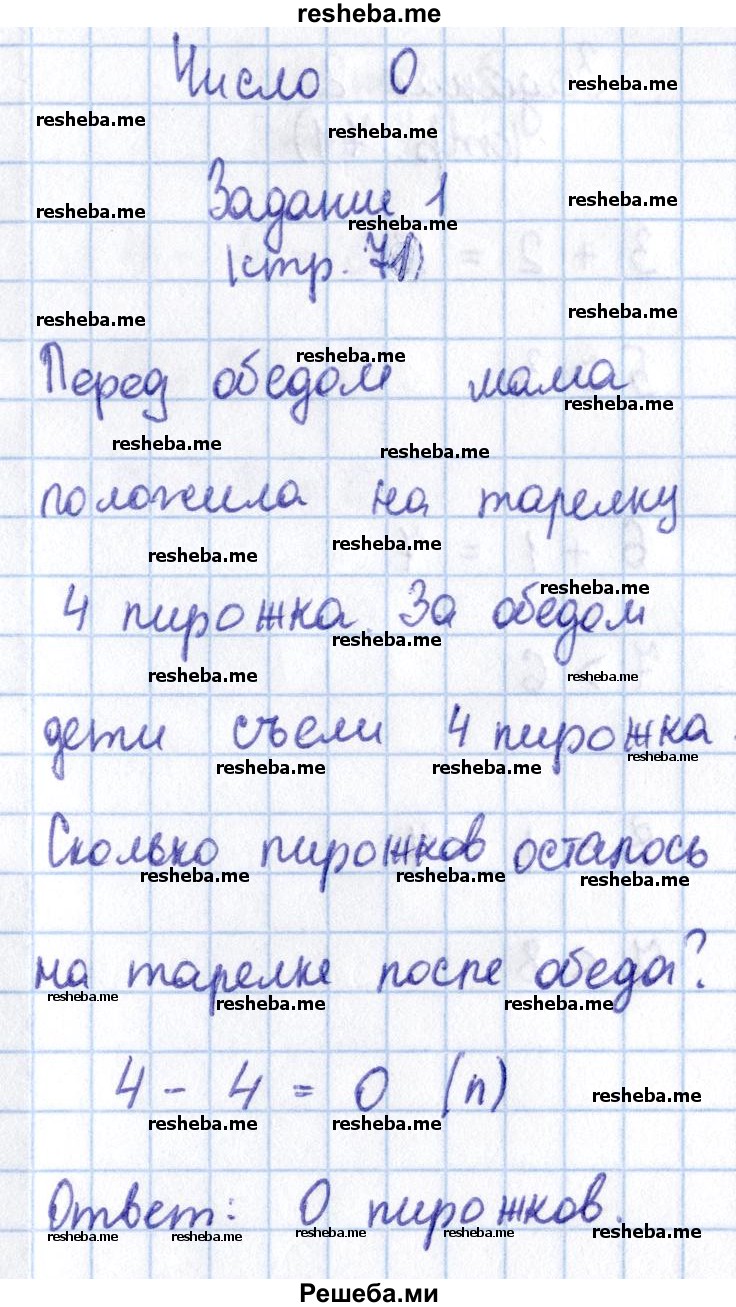 resheba.me
Число 0
resheba.me
resheba.me
resheba.me
Задание 1
resheba.me
resheba.me
resheba.me
(стр. 71)
resheba.me
resheba.me
resheba.me
Перед обедом мама
resheba.me
resheba.me
resheba.me
положила на тарелку
resheba.me
resheba.me
resheba.me
4 пирожка. За обедом
resheba.me
resheba.me
resheba.me
дети съели 4 пирожка.
resheba.me
resheba.me
resheba.me
Сколько пирожков осталось
resheba.me
resheba.me
resheba.me
на тарелке после обеда?
resheba.me
resheba.me
resheba.me
4 - 4 = 0 (п)
resheba.me
resheba.me
resheba.me
Ответ: 0 пирожков.
resheba.me
resheba.me
resheba.me
resheba.me
resheba.me
Решеба.ми